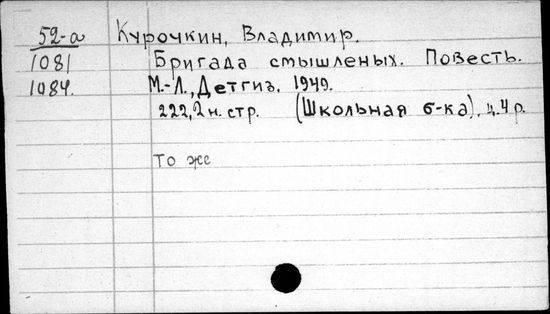 52-а Курочкин, Владимир.
1081 Бригада смышленых. Повесть.
1084. М.-Л., Детгиз. 1949.
222,2 н. стр. (Школьная б-ка). ц. 4 р.
То же